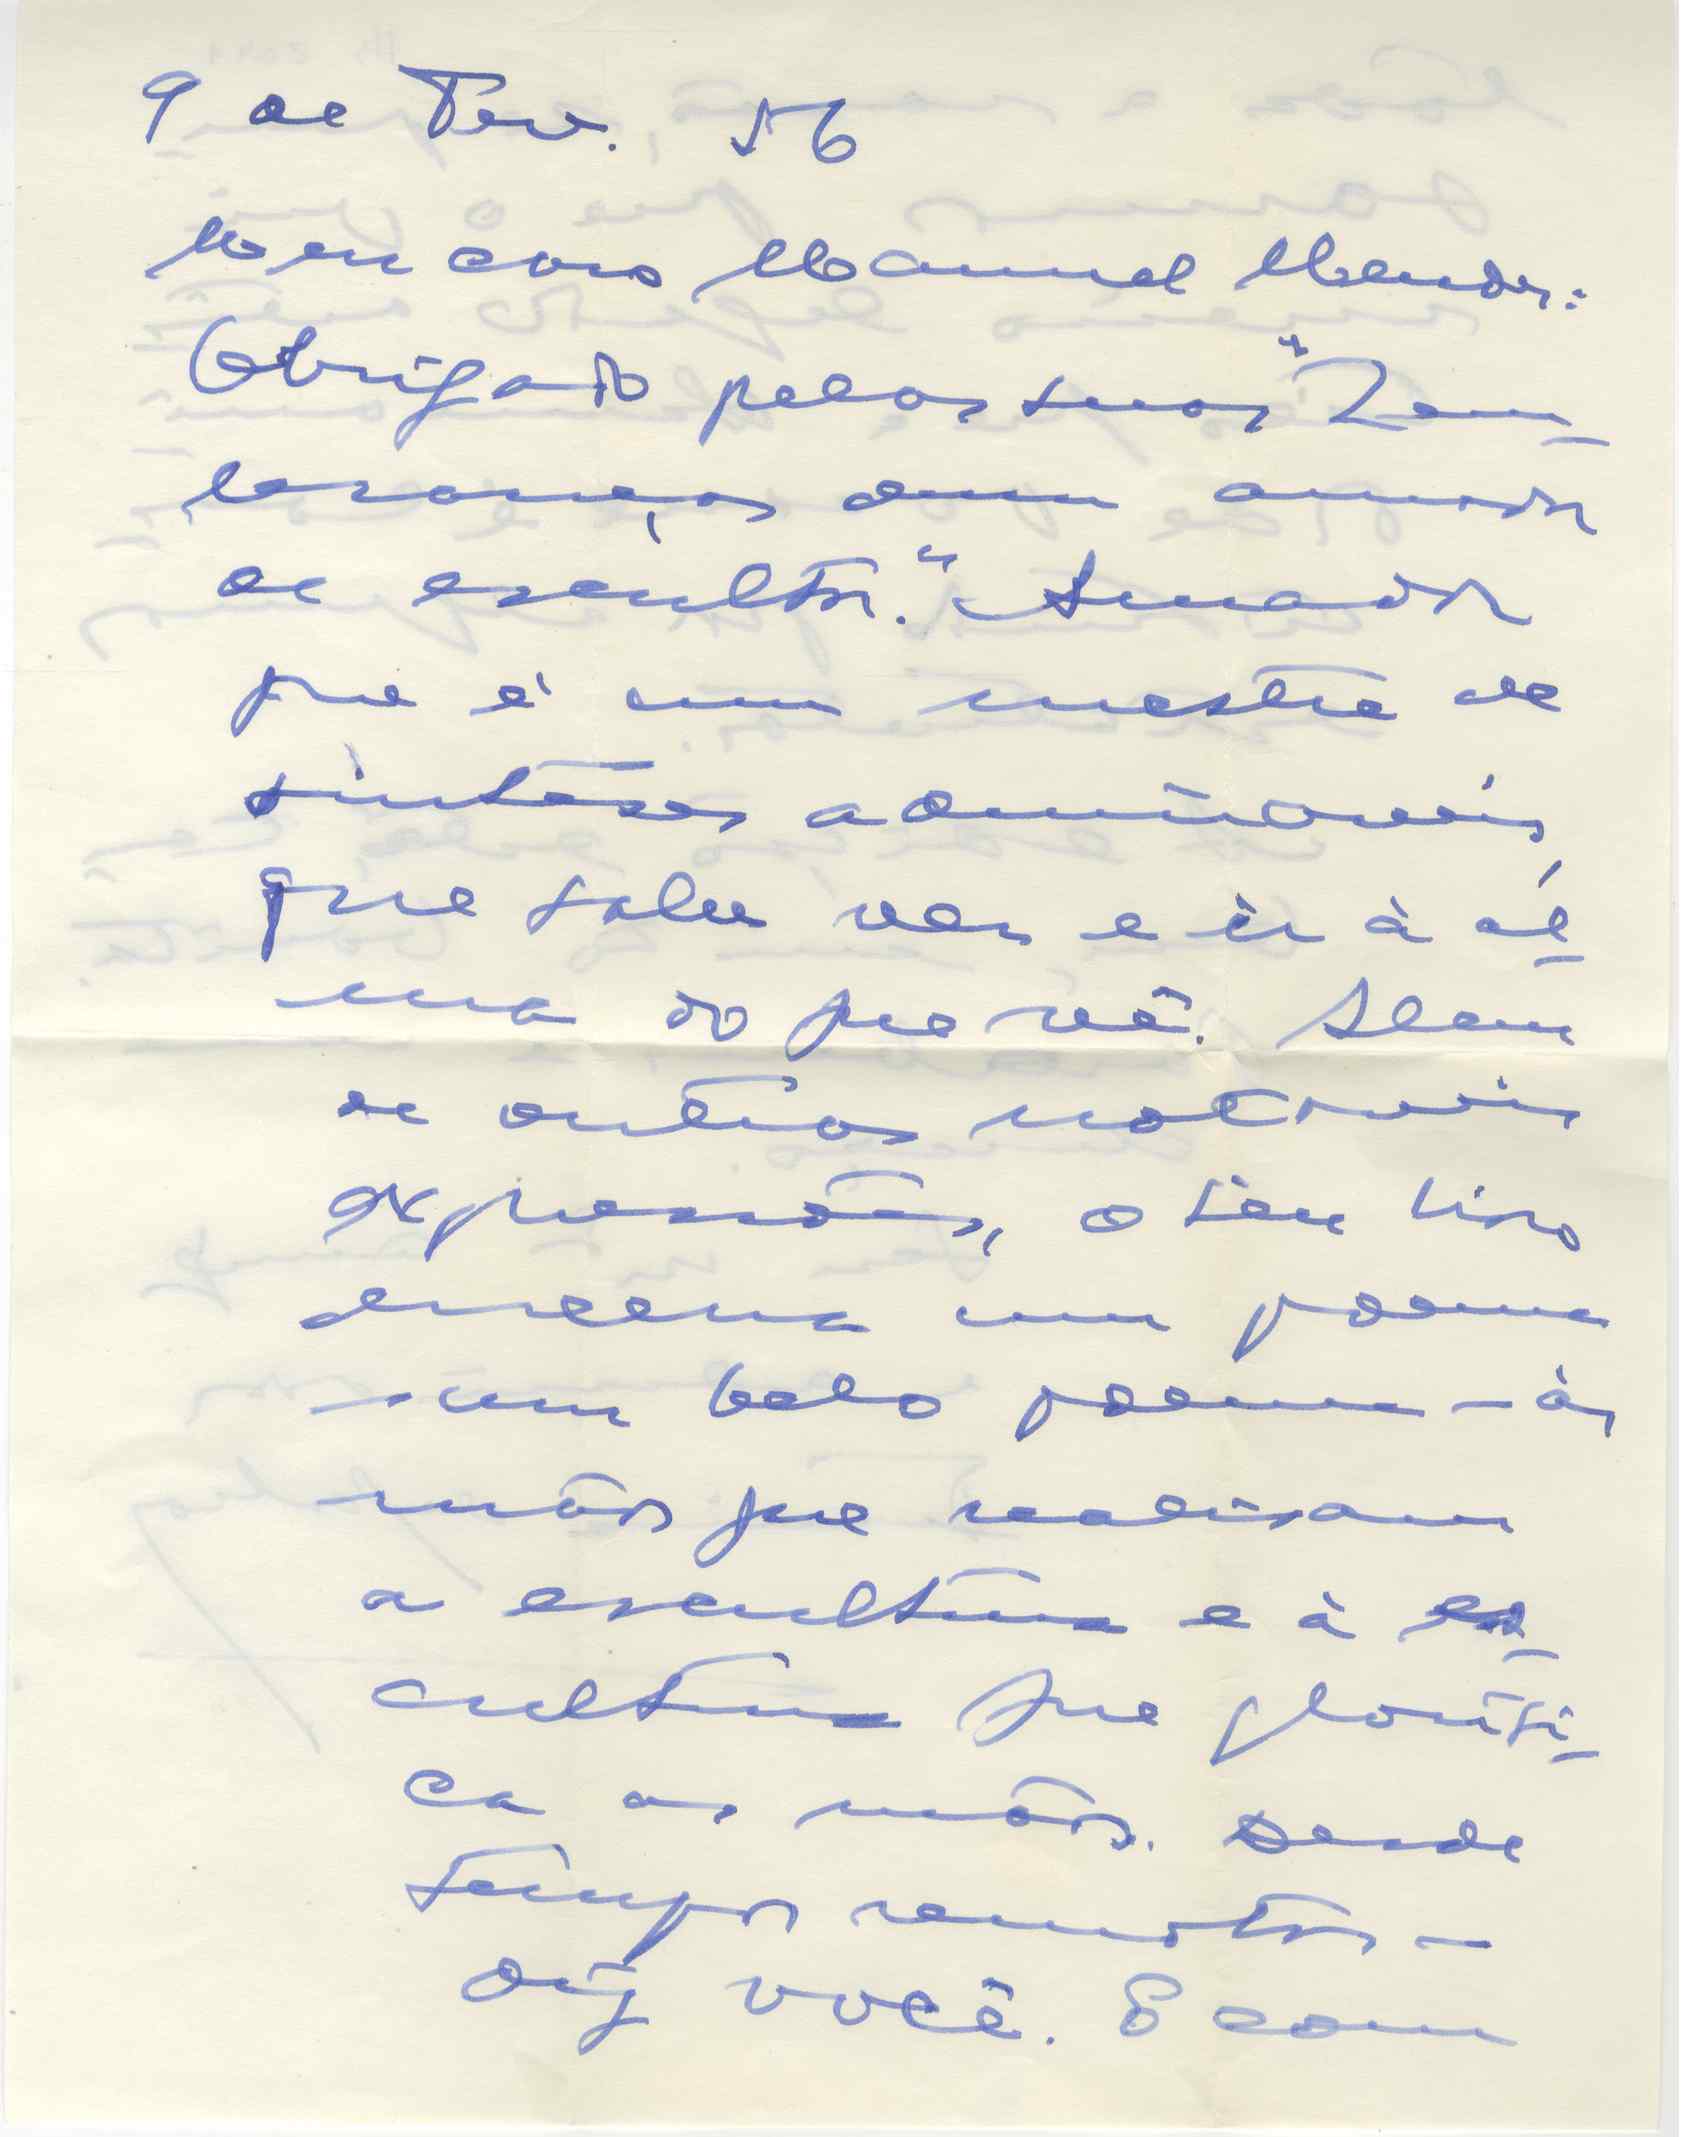 9 de Fev. 56
Meu caro Manuel Mendes:
Obrigado pelas suas "Lem-
branças dum amador
de escultor." Amador
que é um mestre de
sínteses admiráveis,
que sabe ver e ir à al-
ma do que vê. Alem
de outras notáveis
expressões, o seu livro
encerra um poema
- um belo poema - às
mãos que realizam
a escultura e à es-
cultura que glorifi-
ca as mãos. Desde
tempos remotos -
diz você. E com